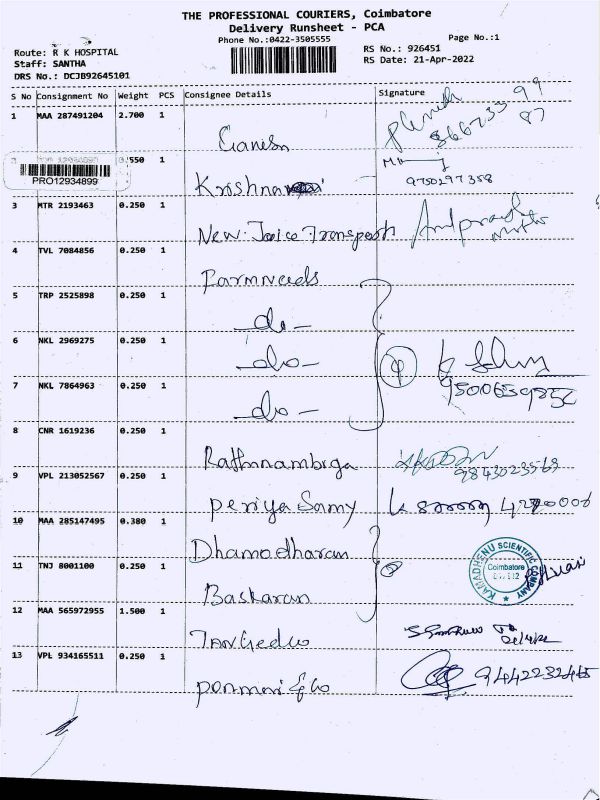 THE PROFESSIONAL COURIERS, Coimbatore
Delivery Runsheet - PCA
Phone No.:0422-3505555
Page No.:1
Route: R K HOSPITAL
RS No.: 926451
Staff: SANTHA
RS Date: 21-Apr-2022
DRS No.: DCJB92645101
S No Consignment No Weight PCS Consignee Details Signature
1 MAA 287491204 2.700 1 Ganesh
550 1 Krishna
PRO12934899
9750297358
3 MTR 2193463 0.250 1 New Transport
4 TVL 7084856 0.250 1 Farmneeds
5 TRP 2525898 0.250 1 -do-
6 NKL 2969275 0.250 1 -do-
7 NKL 7864963 0.250 1 -do-
8 CNR 1619236 0.250 1 Rathnambiga
9843023569
9 VPL 213052567 0.250 1 Periya Samy
10 MAA 285147495 0.380 1 Dhamodharan
KAMADHENU SCIENTIFIC COMPANY
Coimbatore
11 TNJ 8001100 0.250 1 Baskaran
12 MAA 565972955 1.500 1 Tangedco
13 VPL 934165511 0.250 1 Ponmani & Co 9442232465